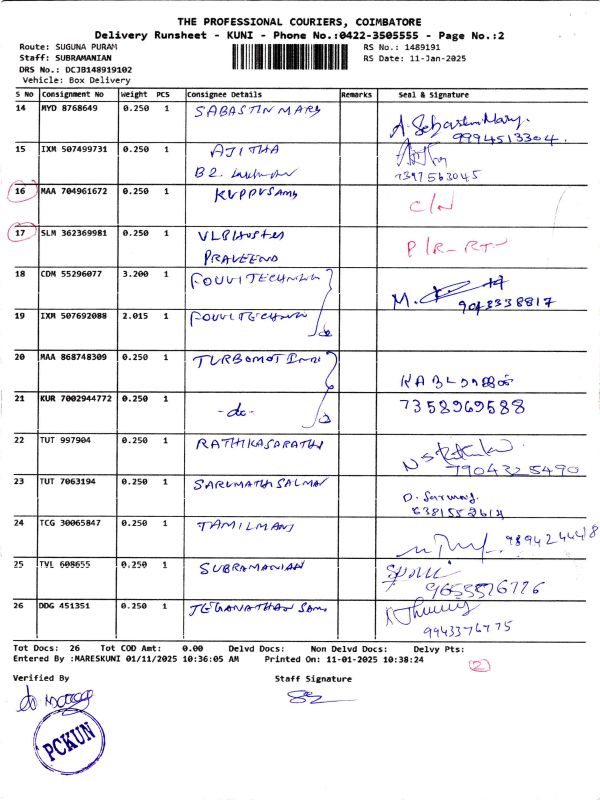 THE PROFESSIONAL COURIERS, COIMBATORE
Delivery Runsheet - KUNI - Phone No.:0422-3505555 - Page No.:2
Route: SUGUNA PURAM RS No.: 1489191
Staff: SUBRAMANIAN RS Date: 11-Jan-2025
DRS No.: DCJB148919102
Vehicle: Box Delivery
S No Consignment No Weight PCS Consignee Details Remarks Seal & Signature
14 MYD 8768649 0.250 1 SABASTIN MARY A. Sebastin Mary.
9994513304.
15 IXM 507499731 0.250 1 AJITHA
B2. 7397563045
16 MAA 704961672 0.250 1 KUPPUSAMY C/N
17 SLM 362369981 0.250 1 VLB Hostel P/R-RT-
PRAVEEND
18 CDM 55296077 3.200 1 FOUVITECHNIK M.
9043338817
19 IXM 507692088 2.015 1 FOUVITECHNIK
20 MAA 868748309 0.250 1 TURBOMOT KABL
21 KUR 7002944772 0.250 1 -do- 7358969588
22 TUT 997904 0.250 1 RATHIKASARATHY
7904325490
23 TUT 7063194 0.250 1 SARUMATHI SALMAN
6381552614
24 TCG 30065847 0.250 1 TAMILMANI 9894244418
25 TVL 608655 0.250 1 SUBRAMANIAN
9655576776
26 DDG 451351 0.250 1 JEGANATHAN SAMY
9943376775
Tot Docs: 26 Tot COD Amt: 0.00 Delvd Docs: Non Delvd Docs: Delvy Pts:
Entered By :MARESKUNI 01/11/2025 10:36:05 AM Printed On: 11-01-2025 10:38:24 2
Verified By Staff Signature
PCKUN